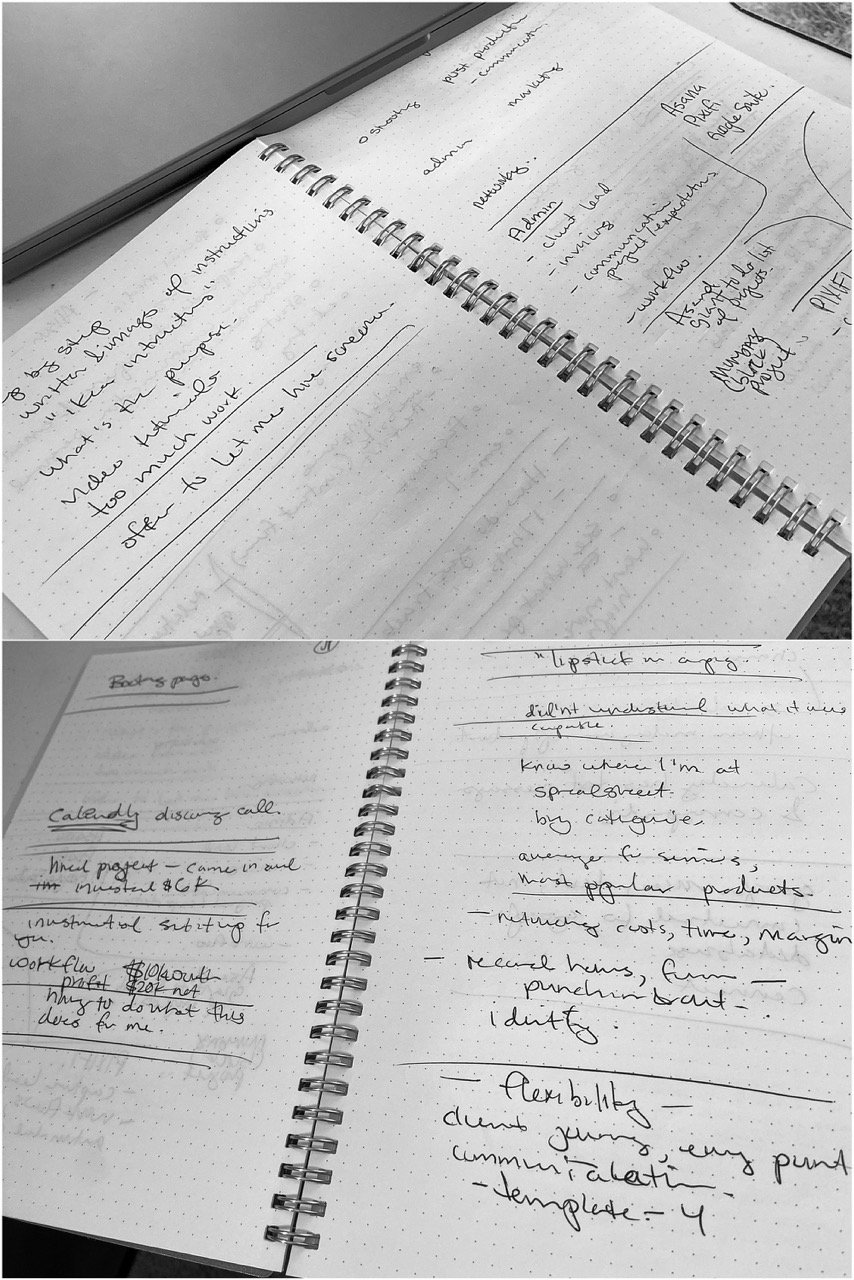 post production
- communication
o shooting
marketing
admin
networking..
Asana
Pixifi
Google Suite.
Admin
- client lead
- invoicing
- communication
project/expectations
- workflow.
Asana
giant to do list
of projects.
PIXIFI
by step
written
of instructions
"Ikea instructions"
what's the purpose.
video tutorials
too much work
offer to let me hire someone.
Booking page.
Calendly discovery call.
hired project - came in and
invested $6K
investment of setting it up for
you.
workflow $10k/month
profit $20K net
to do what this
does for me.
"lipstick on a pig."
didn't understand what it was
capable.
know where I'm at
spreadsheet.
by categories,
average for services,
most popular products.
- reducing costs, time, margin
- record hours, from
punch in & out -
identify.
- flexibility -
client journey, every point
communication.
- template - 4